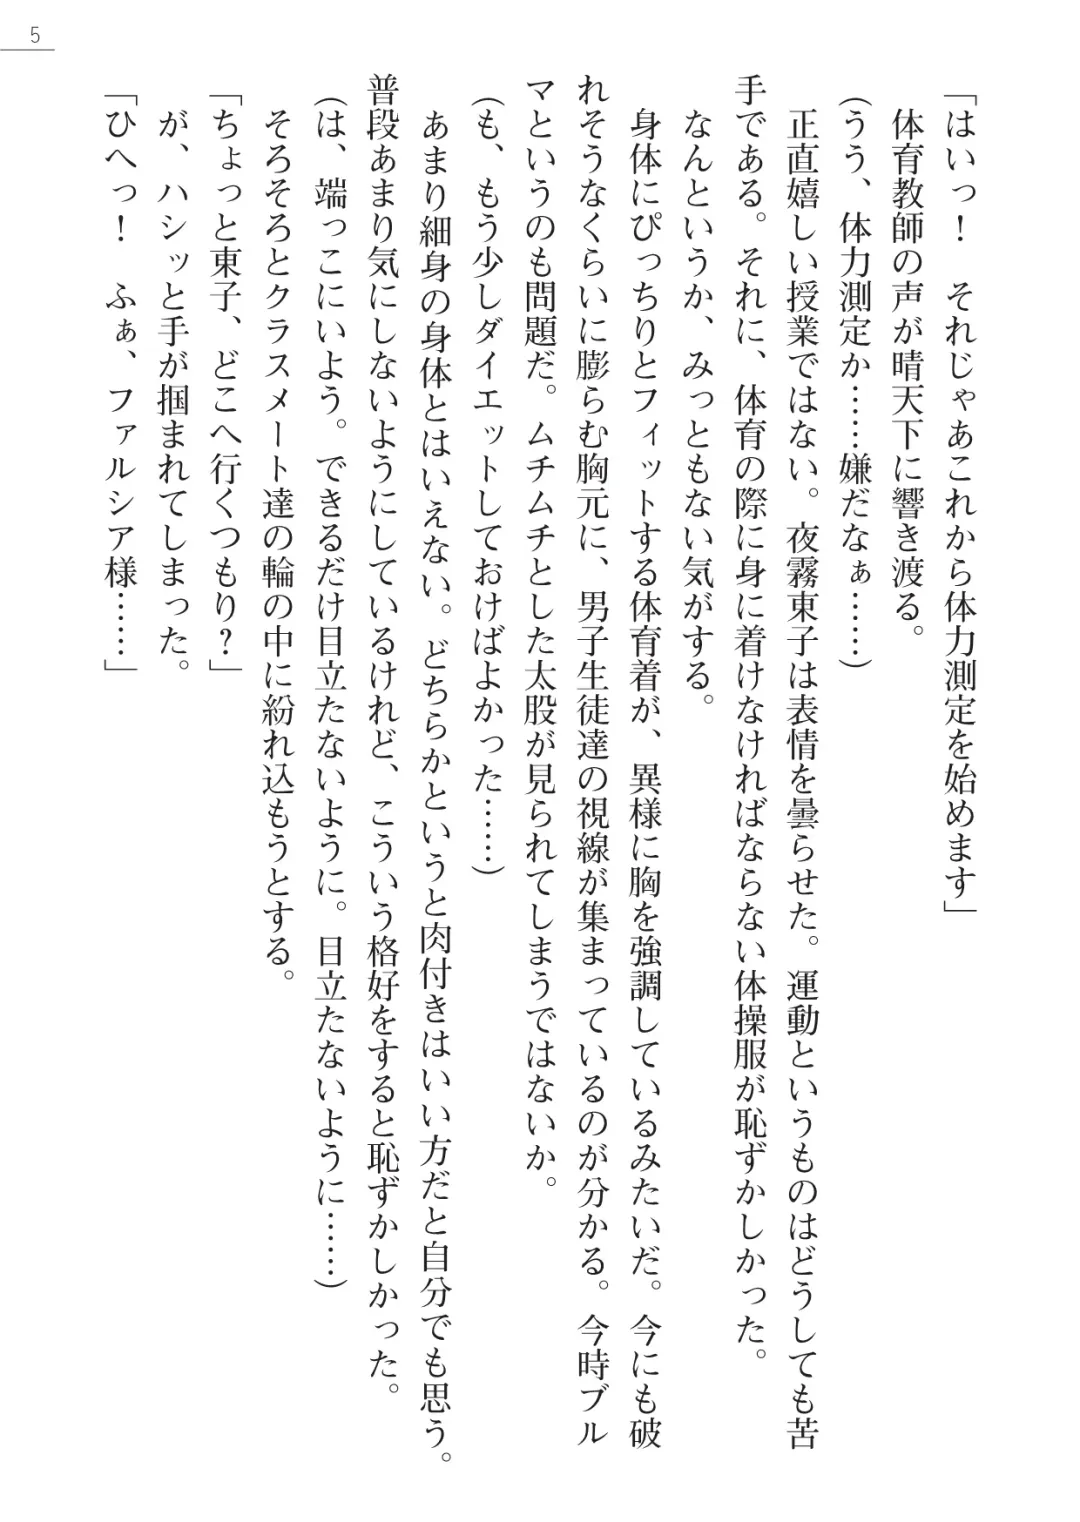 5
「はいっ！　それじゃあこれから体力測定を始めます」
体育教師の声が晴天下に響き渡る。
（うう、体力測定か……嫌だなぁ……）
正直嬉しい授業ではない。夜霧東子は表情を曇らせた。運動というものはどうしても苦
手である。それに、体育の際に身に着けなければならない体操服が恥ずかしかった。
なんというか、みっともない気がする。
身体にぴっちりとフィットする体育着が、異様に胸を強調しているみたいだ。今にも破
れそうなくらいに膨らむ胸元に、男子生徒達の視線が集まっているのが分かる。今時ブル
マというのも問題だ。ムチムチとした太股が見られてしまうではないか。
（も、もう少しダイエットしておけばよかった……）
あまり細身の身体とはいえない。どちらかというと肉付きはいい方だと自分でも思う。
普段あまり気にしないようにしているけれど、こういう格好をすると恥ずかしかった。
（は、端っこにいよう。できるだけ目立たないように。目立たないように……）
そろそろとクラスメート達の輪の中に紛れ込もうとする。
「ちょっと東子、どこへ行くつもり？」
が、ハシッと手が掴まれてしまった。
「ひへっ！　ふぁ、ファルシア様……」